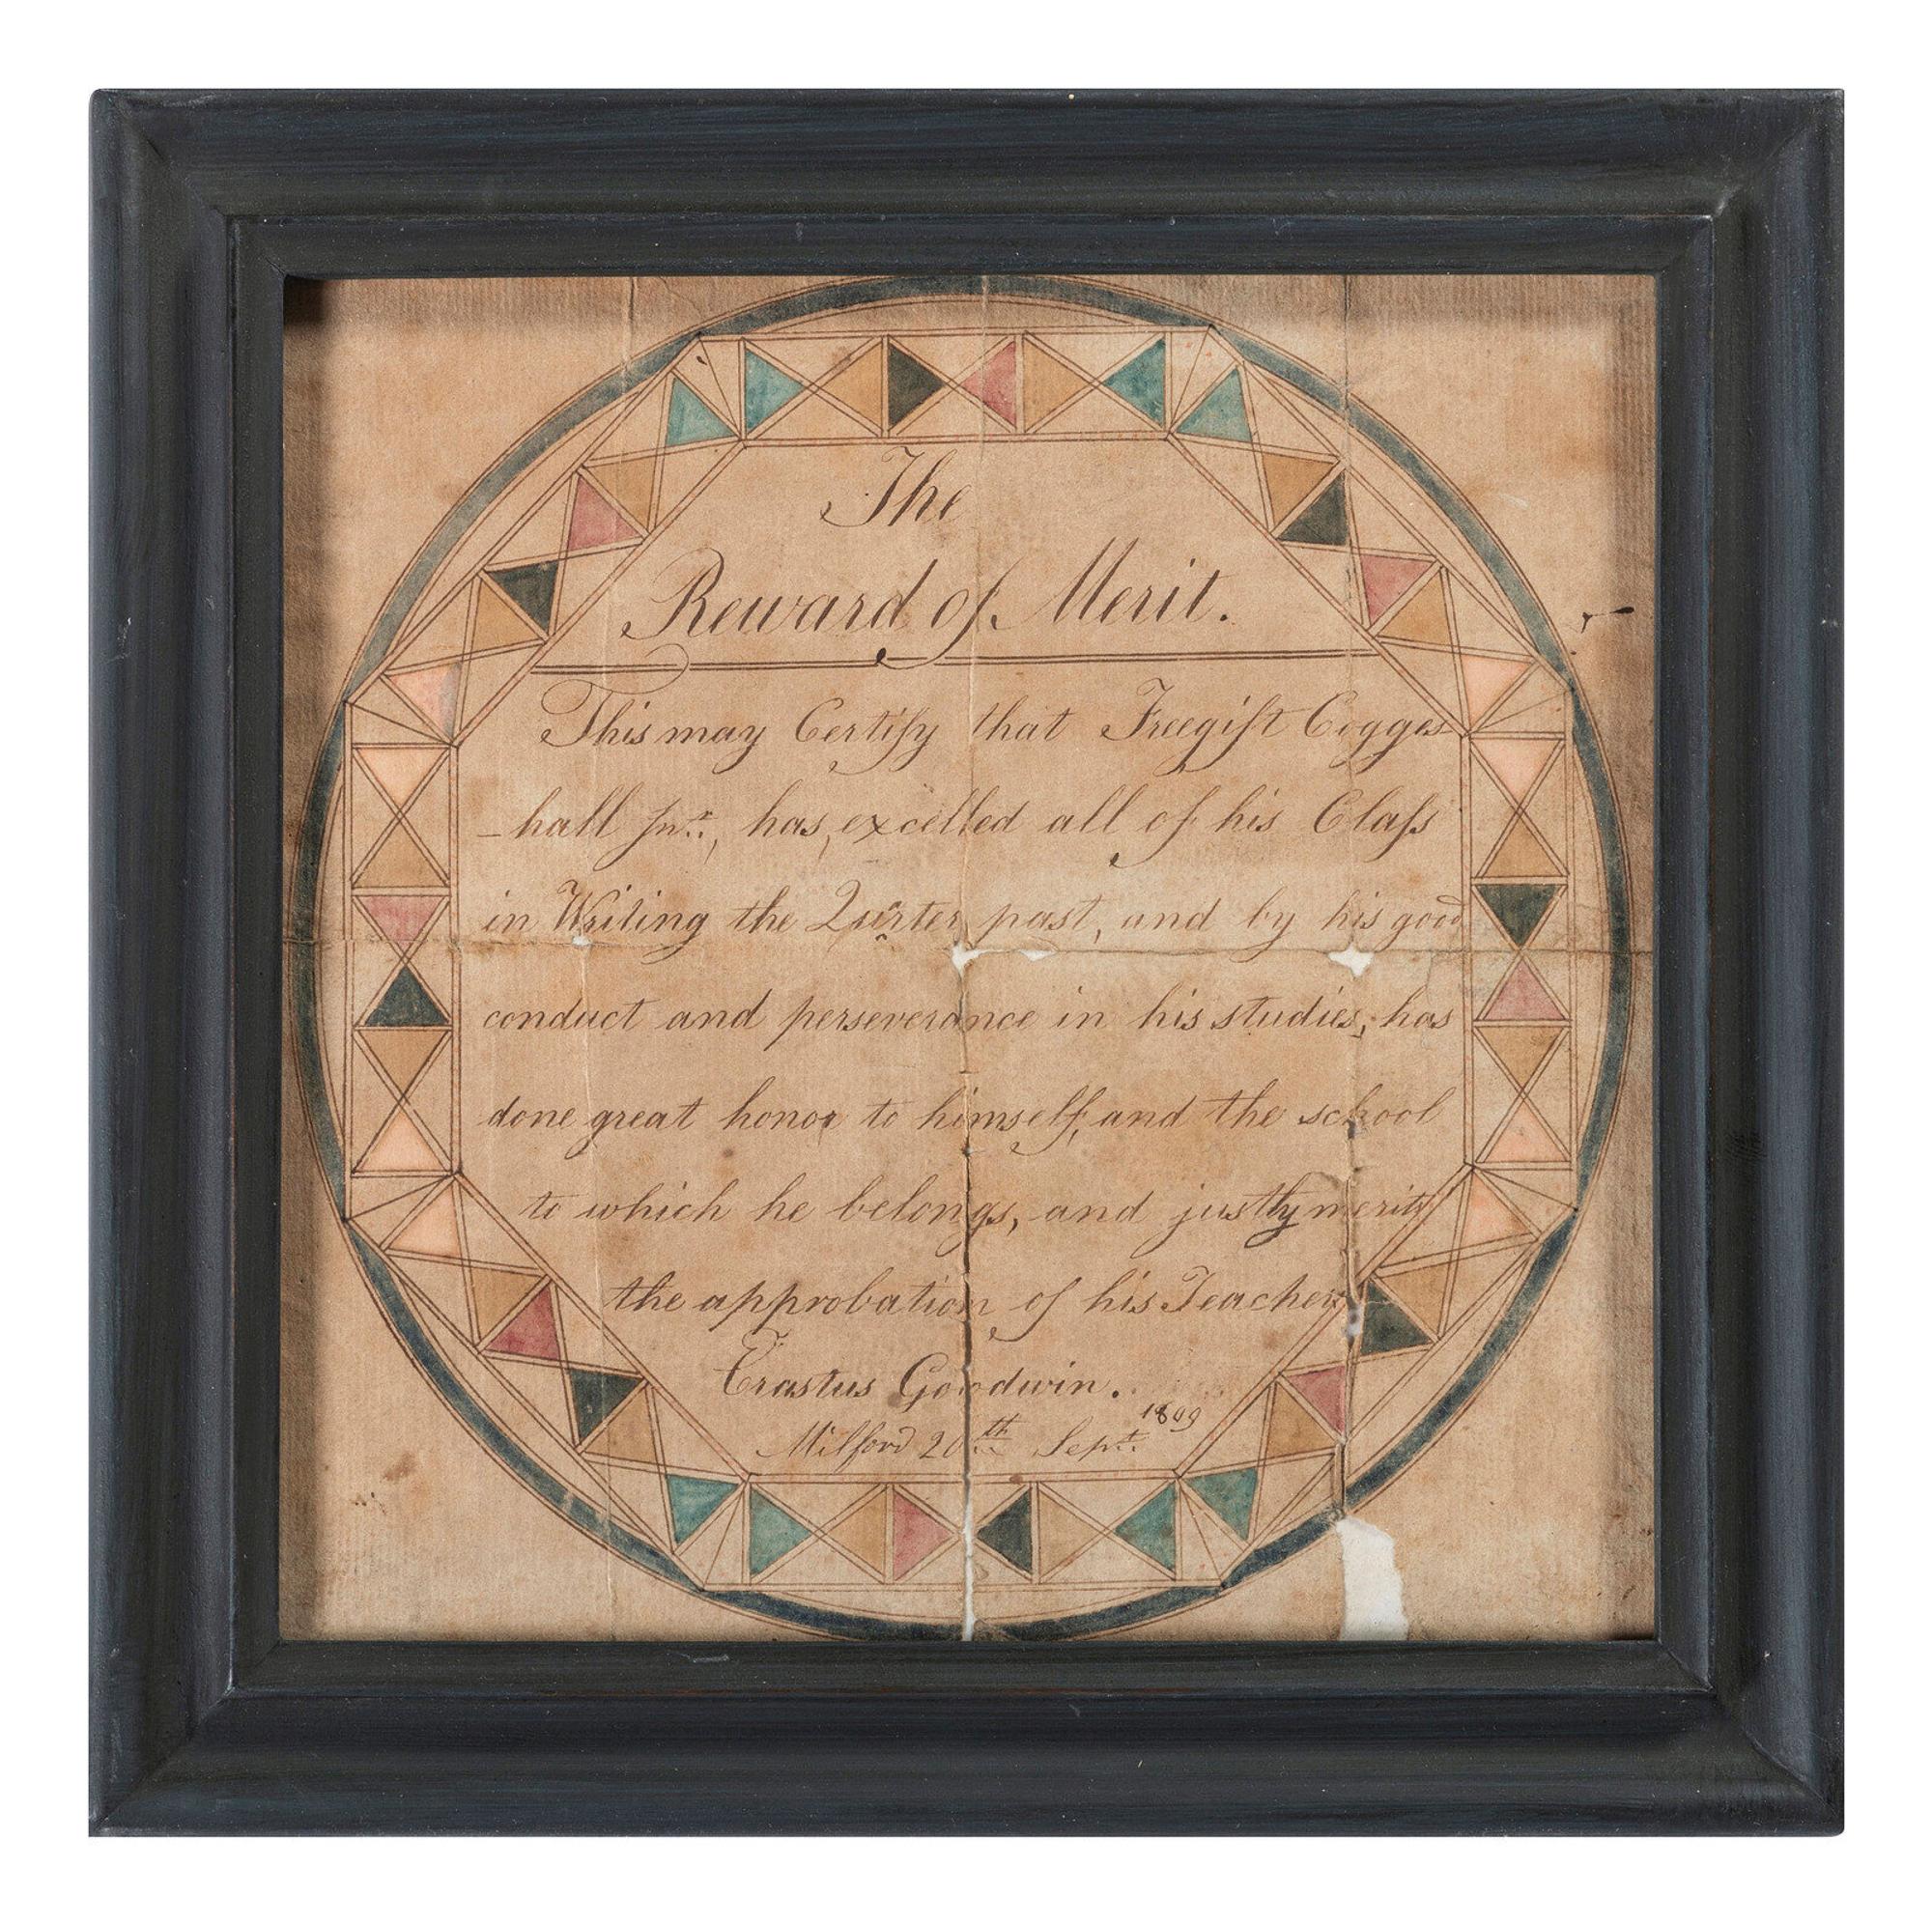 The
Reward of Merit.
This may Certify that Freegift Cogges
-hall Jnr., has, excelled all of his Claſs
in Writing the Qurter past, and by his good
conduct and perseverance in his studies, has
done great honor to himself, and the school
to which he belongs, and justly merits
the approbation of his Teacher
Erastus Goodwin.
Milford 20th Sept. 1809